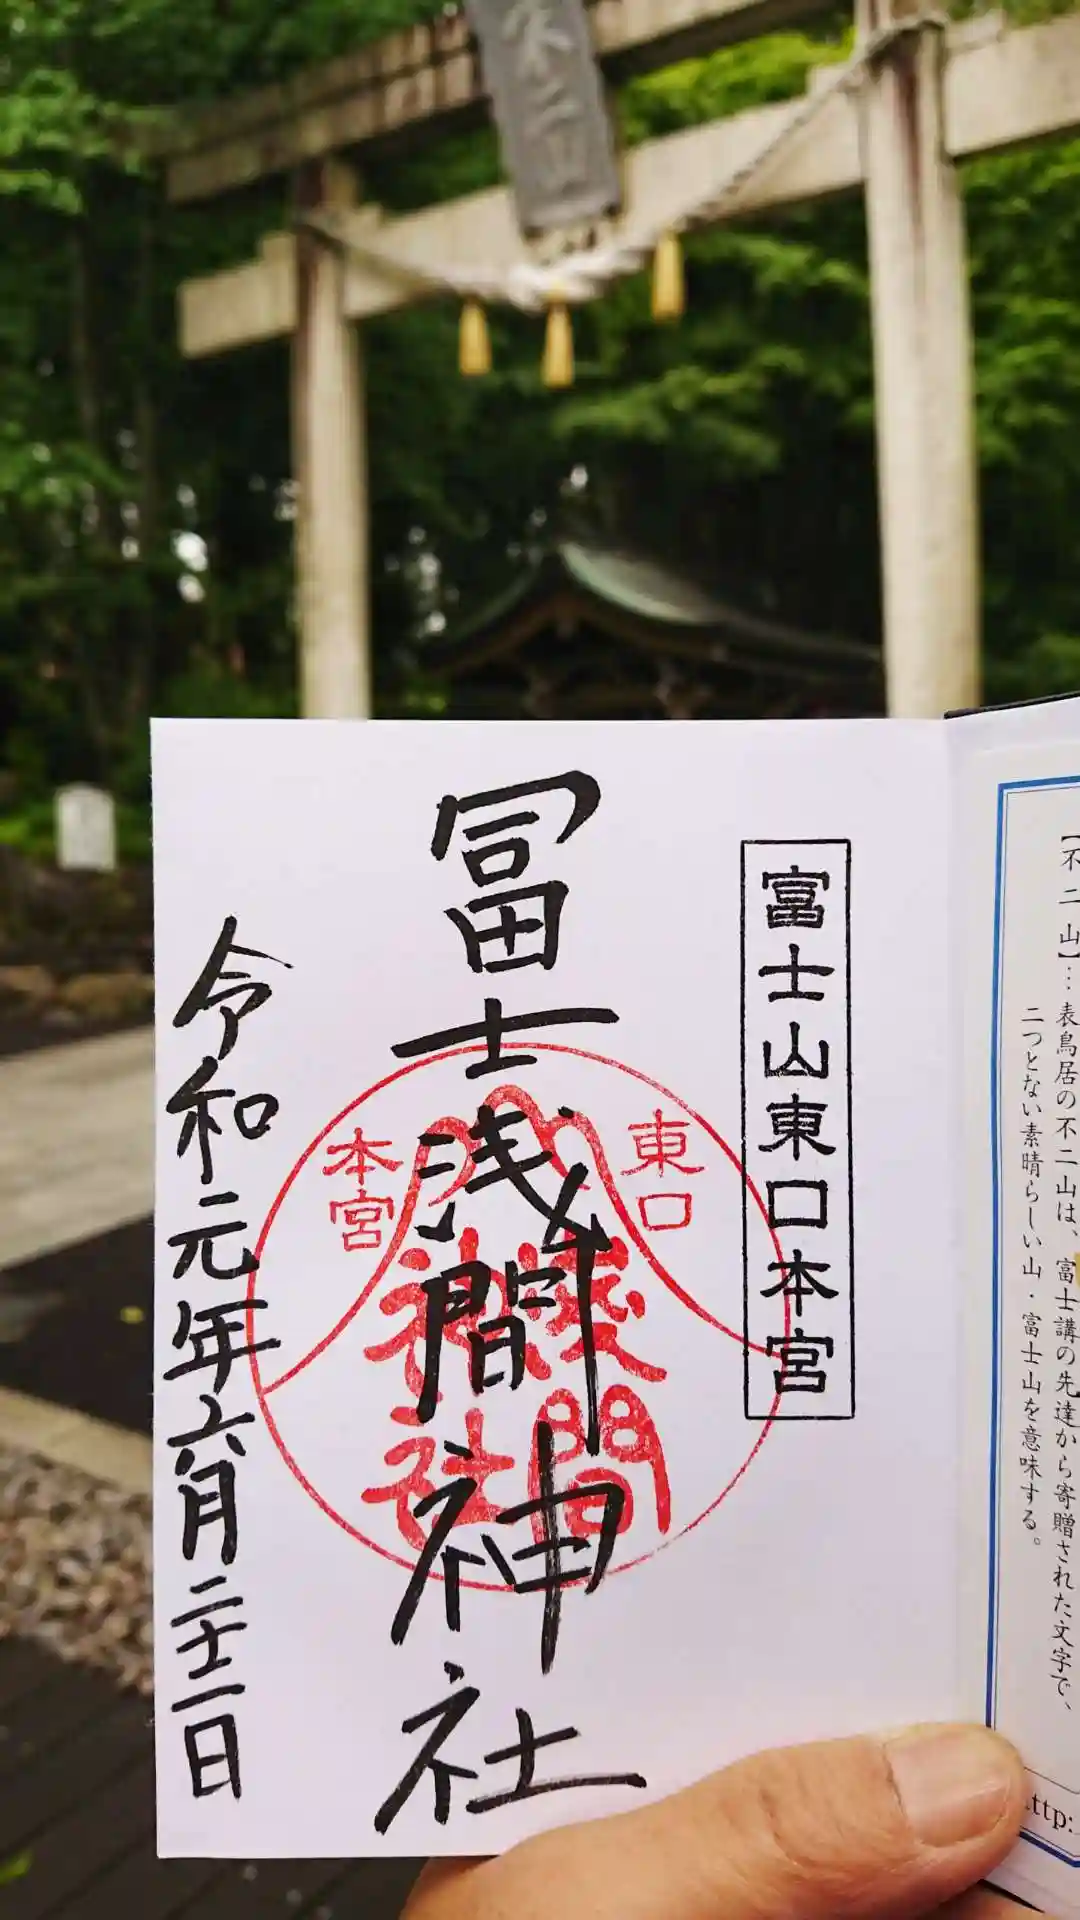 【不二山】…表鳥居の不二山は、富士講の先達から寄贈された文字で、
二つとない素晴らしい山・富士山を意味する。
http:
富士山東口本宮
冨士浅間神社
東口
本宮
淺間
神社
令和元年六月二十二日